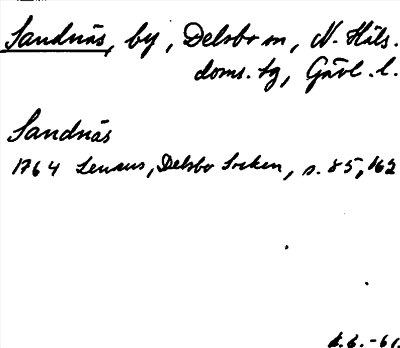 Sandnäs, by, Delsbo sn, N. Häls.
doms. tg, Gävl. l.
Sandnäs
1764 Lenæus, Delsbo Socken, s. 85, 162
-61.